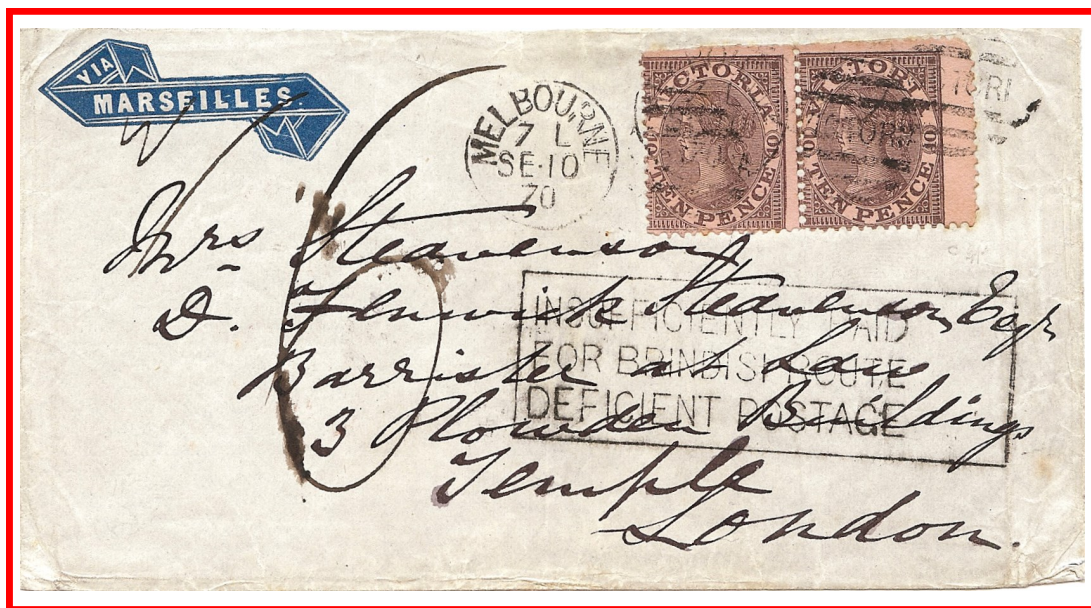 VIA
MARSEILLES.
MELBOURNE
7 L
SE·10
70
VICTORIA
10
TEN PENCE
VICTORIA
10 10
TEN PENCE
6
Mrs Steavenson
D. Fenwick Steavenson, Esqr
Barrister at Law
3 Plowden Buildings
Temple
London.
INSUFFICIENTLY PAID
FOR BRINDISI ROUTE
DEFICIENT POSTAGE